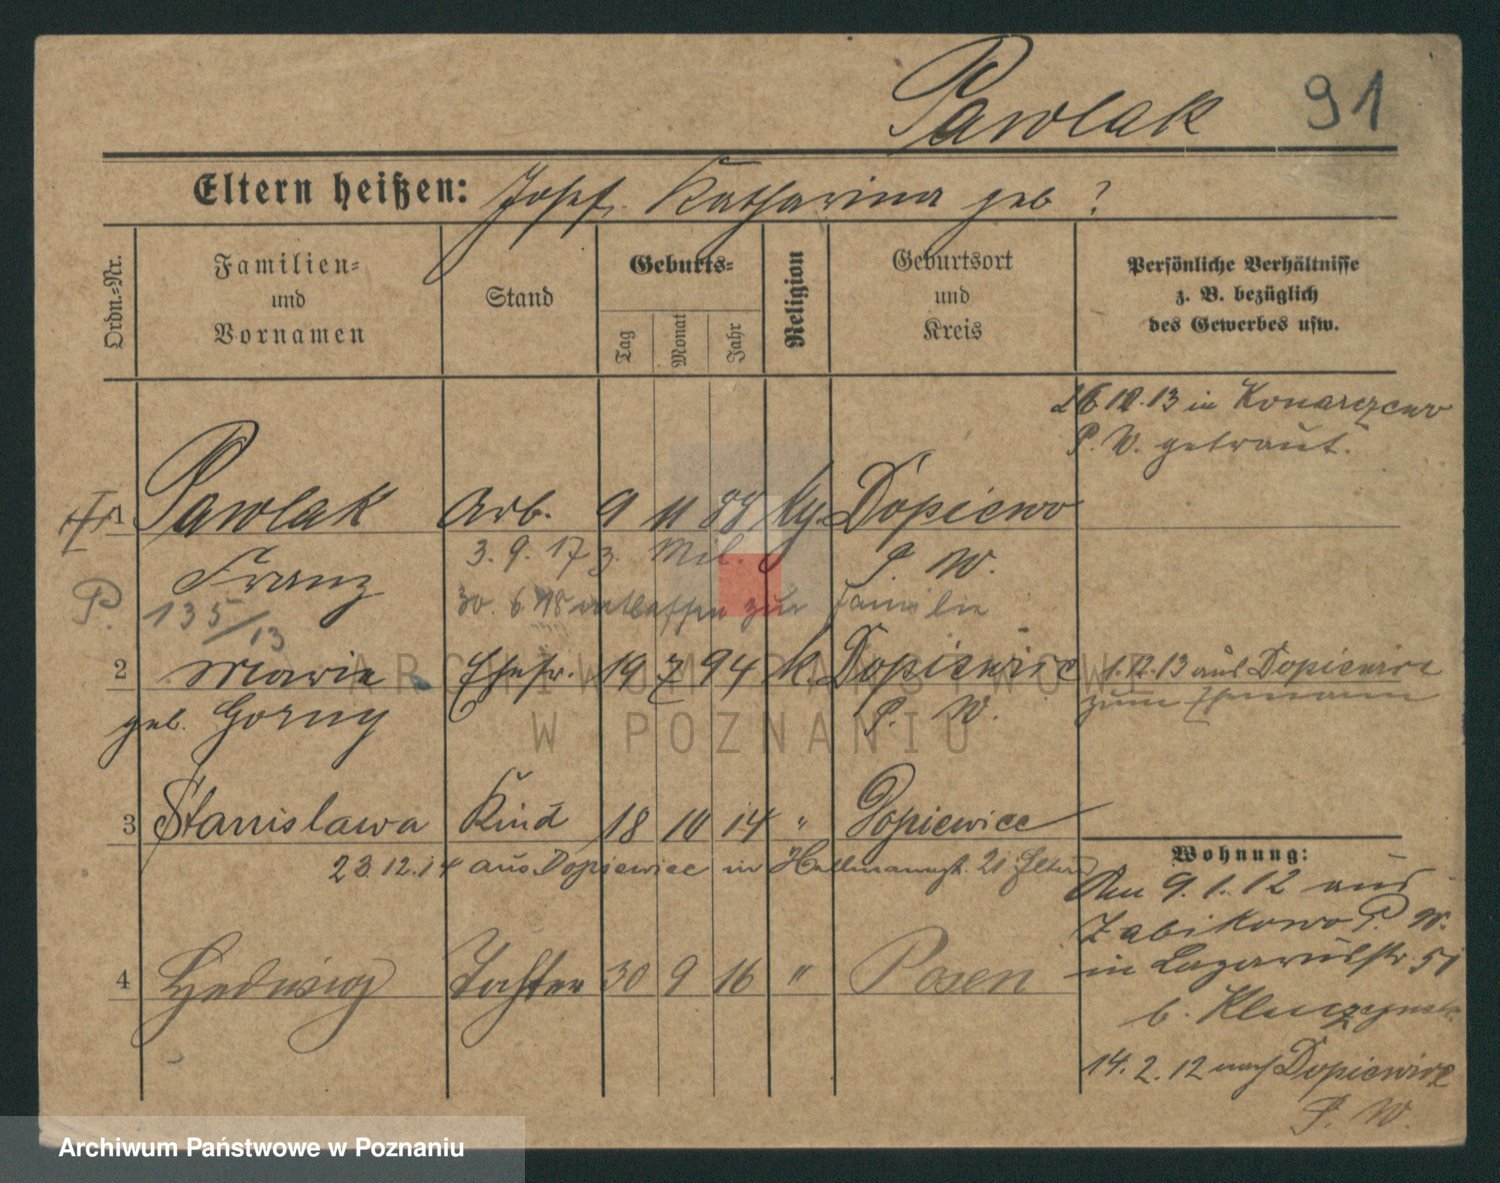 Pawlak 91
Eltern heißen: Josef Katharina geb ?
Ordn.-Nr.
Familien-
und
Vornamen
Stand
Geburts-
Tag
Monat
Jahr
Religion
Geburtsort
und
Kreis
Persönliche Verhältnisse
z. B. bezüglich
des Gewerbes usw.
in Konarzewo
P. W. getraut.
1 Pawlak Arb. 9 11 88 Dopiewo
3. 9. 17 z. Mil. P. W.
Franz
P. 30. 6. 18 entlassen zur Familie
135/13
2 Marie Ehefr. 19 7 94 k. Dopiewice 1.12.13 aus Dopiewice
zum Ehemann
geb. Gorny P. W.
3 Stanislawa Kind 18 10 14 " Dopiewice
23.12.14 aus Dopiewice in 21 Eltern
Wohnung:
Am 9. 1. 12 aus
Zabikowo P. W.
in Lazarusstr 51
4 Hedwig Tochter 30 9 16 " Posen
b.
14. 2. 12 nach Dopiewice
P. W.
ARCHIWUM PAŃSTWOWE
W POZNANIU
Archiwum Państwowe w Poznaniu